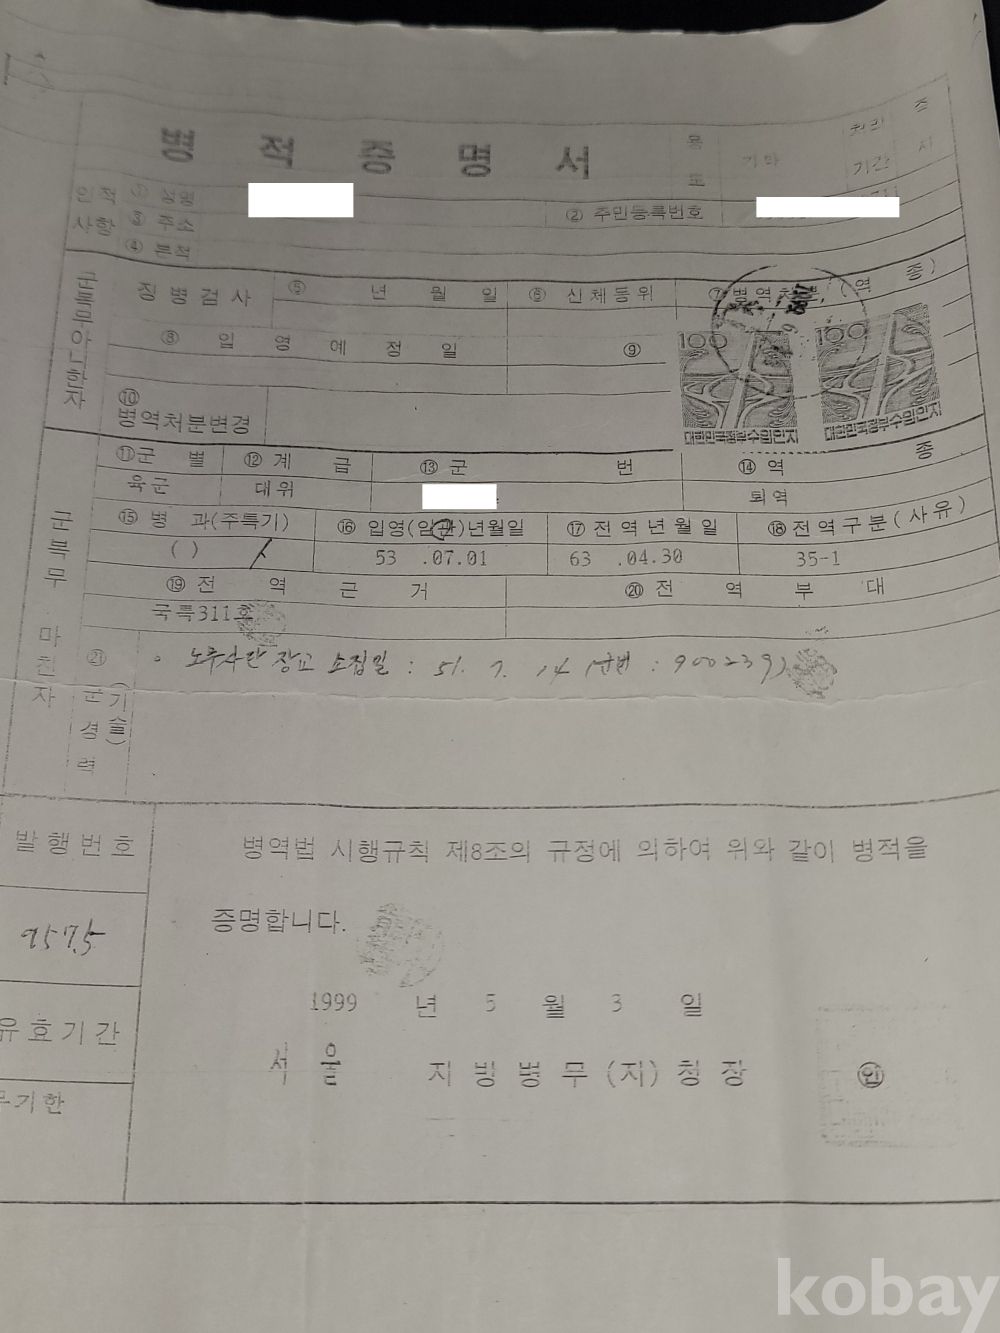 병 적 증 명 서
용 도
기타
처리
기간
즉 시
인 적 사 항
① 성명
② 주민등록번호
③ 주소
④ 본적
군복무아니한자
징 병 검 사
⑤ 년 월 일
⑥ 신 체 등 위
⑦ 병 역 처 분 (역 종)
⑧ 입 영 예 정 일
⑨
100
대한민국정부수입인지
100
대한민국정부수입인지
⑩
병역처분변경
군 복 무 마 친 자
⑪ 군 별
⑫ 계 급
⑬ 군 번
⑭ 역 종
육군
대위
퇴역
⑮ 병 과(주특기)
⑯ 입영(임관)년월일
⑰ 전 역 년 월 일
⑱ 전 역 구 분 (사 유)
( )
53 .07.01
63 .04.30
35-1
⑲ 전 역 근 거
⑳ 전 역 부 대
국특311호
㉑
군 경 력
(기술)
노무사단 장교 소집일 : 51. 7. 14 (군번 : 9002391
발 행 번 호
병역법 시행규칙 제8조의 규정에 의하여 위와 같이 병적을
증명합니다.
9575
1999 년 5 월 3 일
유 효 기 간
서 울 지 방 병 무 (지) 청 장 ㊞
무기한
kobay